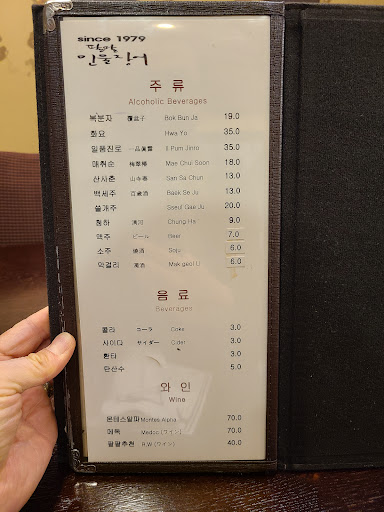 since 1979
팔팔
민물장어
주 류
Alcoholic Beverages
복분자 覆盆子 Bok Bun Ja 19.0
화요 Hwa Yo 35.0
일품진로 一品眞露 Il Pum Jinro 35.0
매취순 梅翠椿 Mae Chui Soon 18.0
산사춘 山寺春 San Sa Chun 13.0
백세주 百歲酒 Baek Se Ju 13.0
쓸개주 Sseul Gae Ju 20.0
청하 淸河 Chung Ha 9.0
맥주 ビール Beer 7.0
소주 燒酒 Soju 6.0
막걸리 濁酒 Mak geol Li 6.0
음 료
Beverages
콜라 コーラ Coke 3.0
사이다 サイダー Cider 3.0
환타 3.0
탄산수 5.0
와 인
Wine
몬테스알파 Montes Alpha 70.0
메독 Medoc (ワイン) 70.0
팔팔추천 R.W (ワイン) 40.0